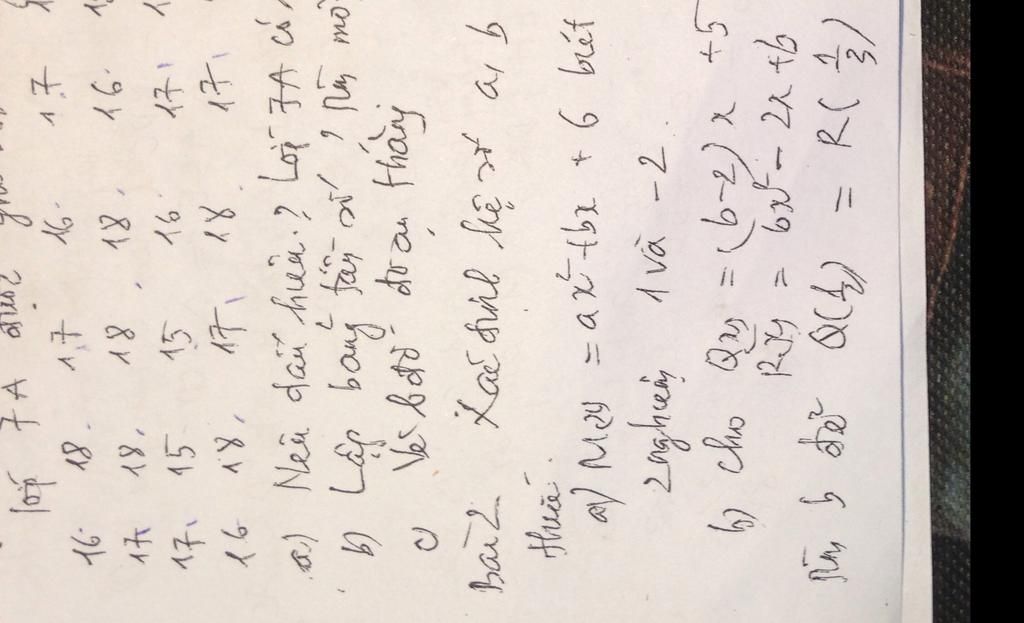 lớp 7A được
16 18 17 16 17
17 18 18 18 16
17 15 15 16 17
16 18 17 18 17
a) Nêu dấu hiệu? Lớp 7A có
b) Lập bảng tần số? Tìm mố
c) Vẽ b đồ đoạn thẳng
Bài 2 Xác định hệ số a, b
a) M(x) = ax² + bx + 6 biết
2 nghiệm 1 và -2
b) Cho Q(x) = (b-2)x + 5
R(x) = bx² - 2x + b
Tìm b để Q(½) = R(1/3)